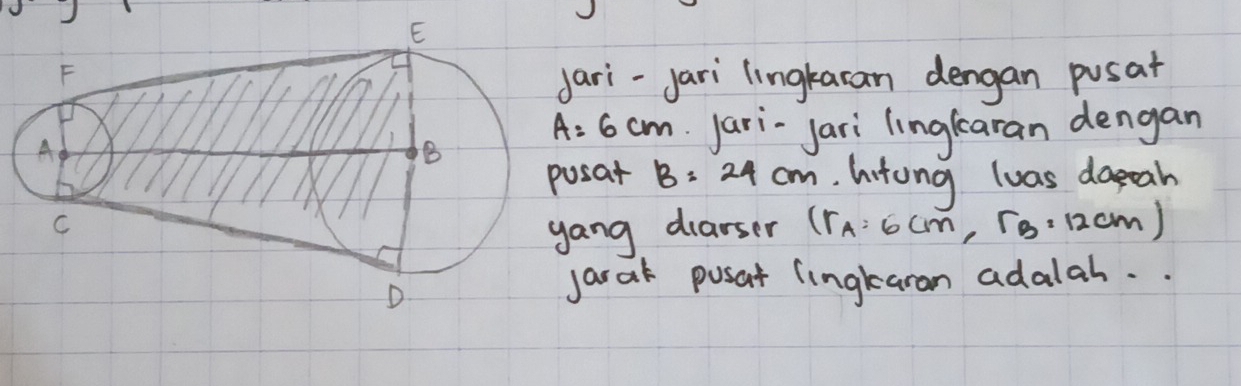 E
F
A
B
C
D
Jari - jari lingkaran dengan pusat
A = 6 cm. Jari - jari lingkaran dengan
pusat B = 24 cm. hitung luas daerah
yang diarser (rA = 6 cm, rB = 12 cm)
Jarak pusat lingkaran adalah . .